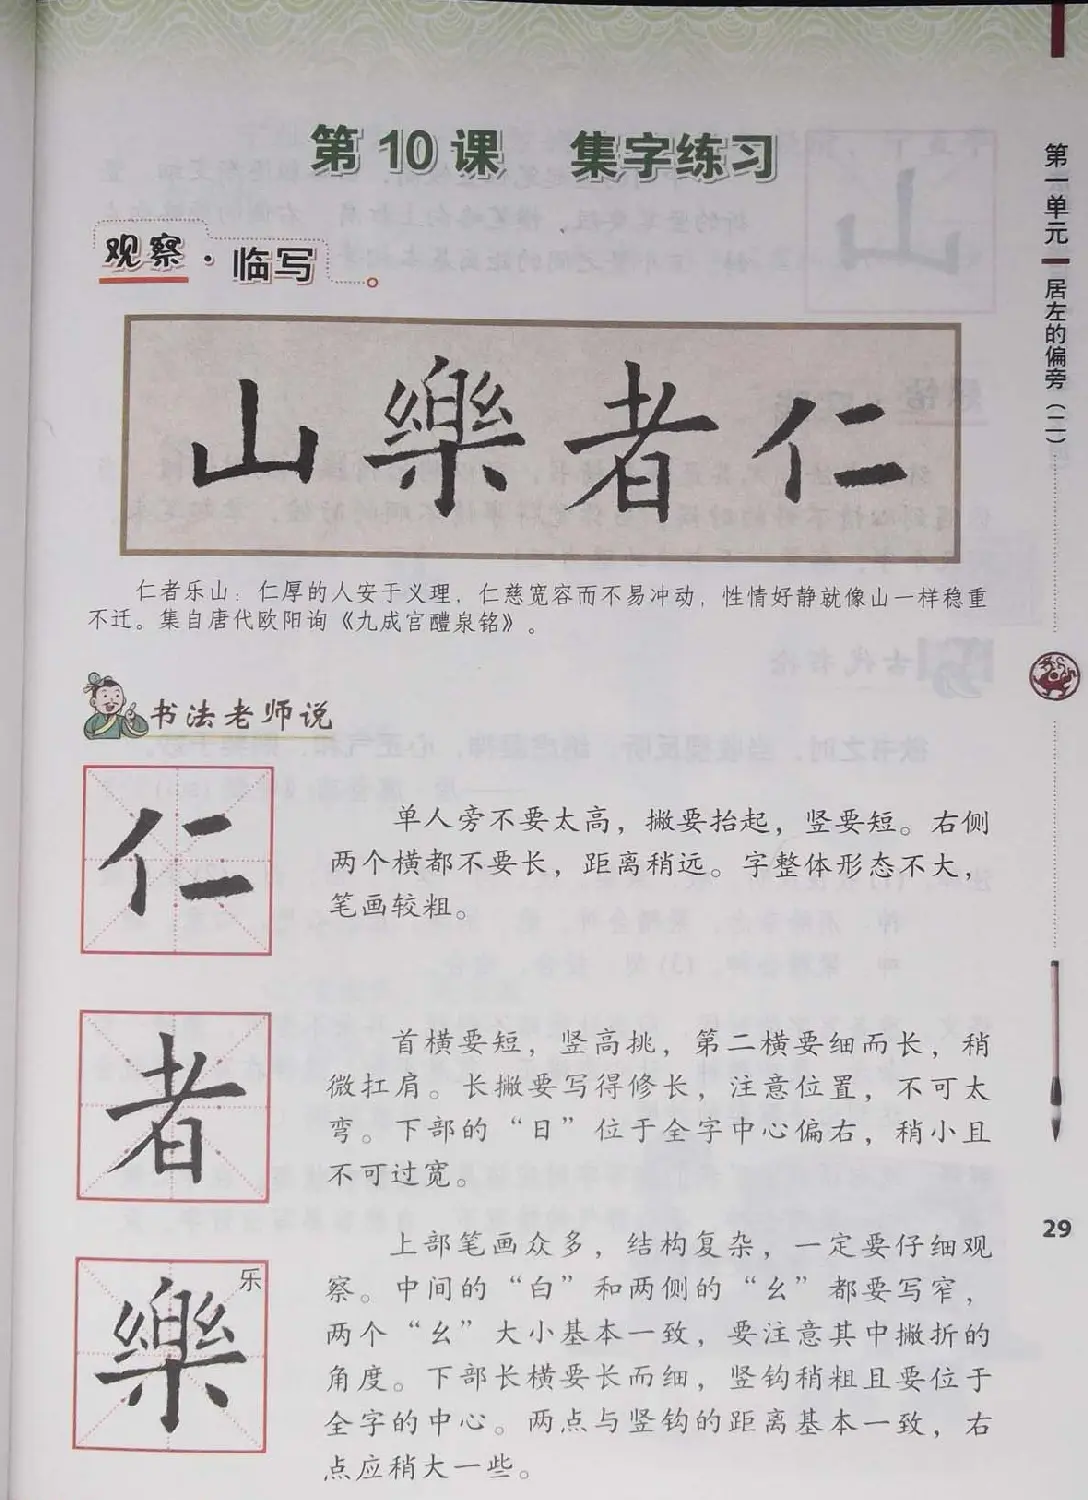 第10课 集字练习
观察·临写
山樂者仁
仁者乐山：仁厚的人安于义理，仁慈宽容而不易冲动，性情好静就像山一样稳重
不迁。集自唐代欧阳询《九成宫醴泉铭》。
书法老师说
仁
单人旁不要太高，撇要抬起，竖要短。右侧
两个横都不要长，距离稍远。字整体形态不大，
笔画较粗。
者
首横要短，竖高挑，第二横要细而长，稍
微扛肩。长撇要写得修长，注意位置，不可太
弯。下部的“日”位于全字中心偏右，稍小且
不可过宽。
樂
乐
上部笔画众多，结构复杂，一定要仔细观
察。中间的“白”和两侧的“幺”都要写窄，
两个“幺”大小基本一致，要注意其中撇折的
角度。下部长横要长而细，竖钩稍粗且要位于
全字的中心。两点与竖钩的距离基本一致，右
点应稍大一些。
第一单元
居左的偏旁（二）
29